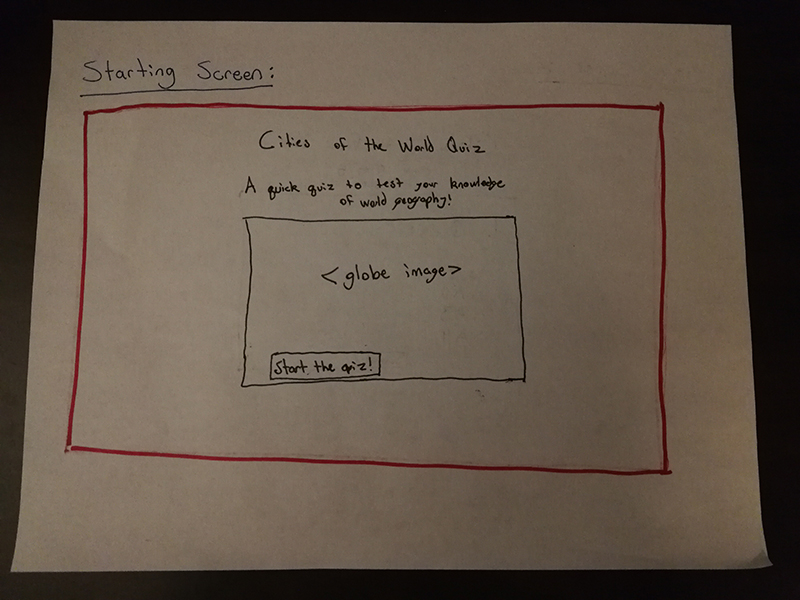 Starting Screen:
Cities of the World Quiz
A quick quiz to test your knowledge
of world geography!
<globe image>
Start the quiz!